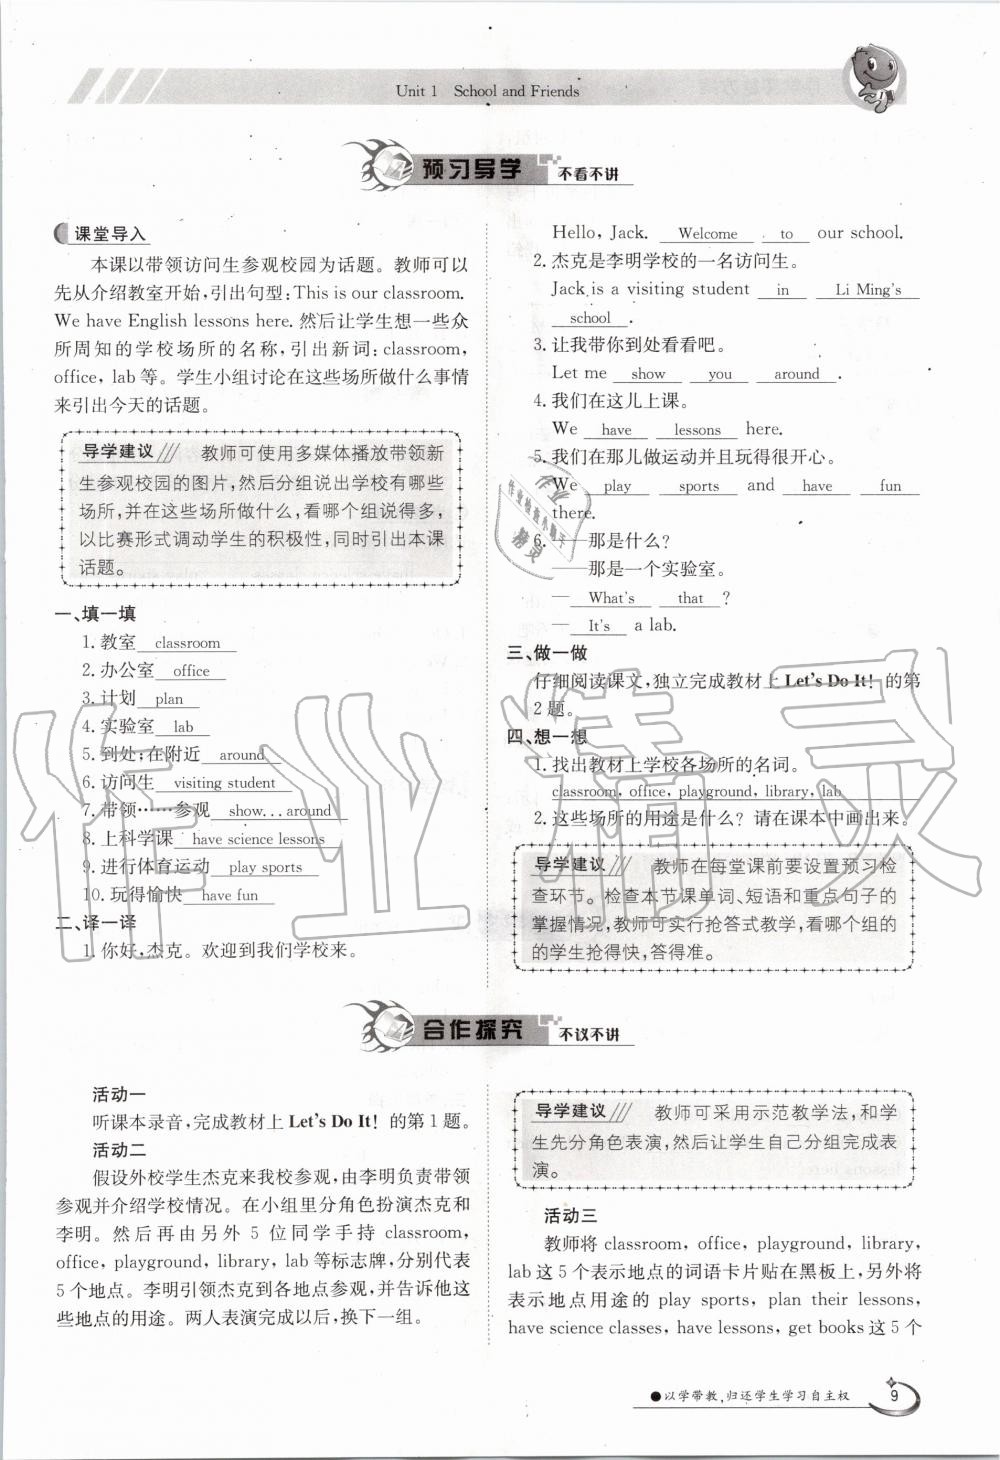 Unit 1 School and Friends
预习导学 不看不讲
课堂导入
本课以带领访问生参观校园为话题。教师可以
先从介绍教室开始,引出句型:This is our classroom.
We have English lessons here. 然后让学生想一些众
所周知的学校场所的名称,引出新词:classroom,
office, lab 等。学生小组讨论在这些场所做什么事情
来引出今天的话题。
导学建议 教师可使用多媒体播放带领新
生参观校园的图片,然后分组说出学校有哪些
场所,并在这些场所做什么,看哪个组说得多,
以比赛形式调动学生的积极性,同时引出本课
话题。
一、填一填
1. 教室 classroom
2. 办公室 office
3. 计划 plan
4. 实验室 lab
5. 到处;在附近 around
6. 访问生 visiting student
7. 带领……参观 show...around
8. 上科学课 have science lessons
9. 进行体育运动 play sports
10. 玩得愉快 have fun
二、译一译
1. 你好,杰克。欢迎到我们学校来。
Hello, Jack. Welcome to our school.
2. 杰克是李明学校的一名访问生。
Jack is a visiting student in Li Ming's
school .
3. 让我带你到处看看吧。
Let me show you around .
4. 我们在这儿上课。
We have lessons here.
5. 我们在那儿做运动并且玩得很开心。
We play sports and have fun
there.
6. ——那是什么?
——那是一个实验室。
— What's that ?
— It's a lab.
三、做一做
仔细阅读课文,独立完成教材上 Let's Do It! 的第
2 题。
四、想一想
1. 找出教材上学校各场所的名词。
classroom, office, playground, library, lab
2. 这些场所的用途是什么? 请在课本中画出来。
导学建议 教师在每堂课前要设置预习检
查环节。检查本节课单词、短语和重点句子的
掌握情况,教师可实行抢答式教学,看哪个组的
的学生抢得快,答得准。
合作探究 不议不讲
活动一
听课本录音,完成教材上 Let's Do It! 的第 1 题。
活动二
假设外校学生杰克来我校参观,由李明负责带领
参观并介绍学校情况。在小组里分角色扮演杰克和
李明。然后再由另外 5 位同学手持 classroom,
office, playground, library, lab 等标志牌,分别代表
5 个地点。李明引领杰克到各地点参观,并告诉他这
些地点的用途。两人表演完成以后,换下一组。
导学建议 教师可采用示范教学法,和学
生先分角色表演,然后让学生自己分组完成表
演。
活动三
教师将 classroom, office, playground, library,
lab 这 5 个表示地点的词语卡片贴在黑板上,另外将
表示地点用途的 play sports, plan their lessons,
have science classes, have lessons, get books 这 5 个
●以学带教,归还学生学习自主权
9
作业精灵
作业检查小帮手
作业
精灵